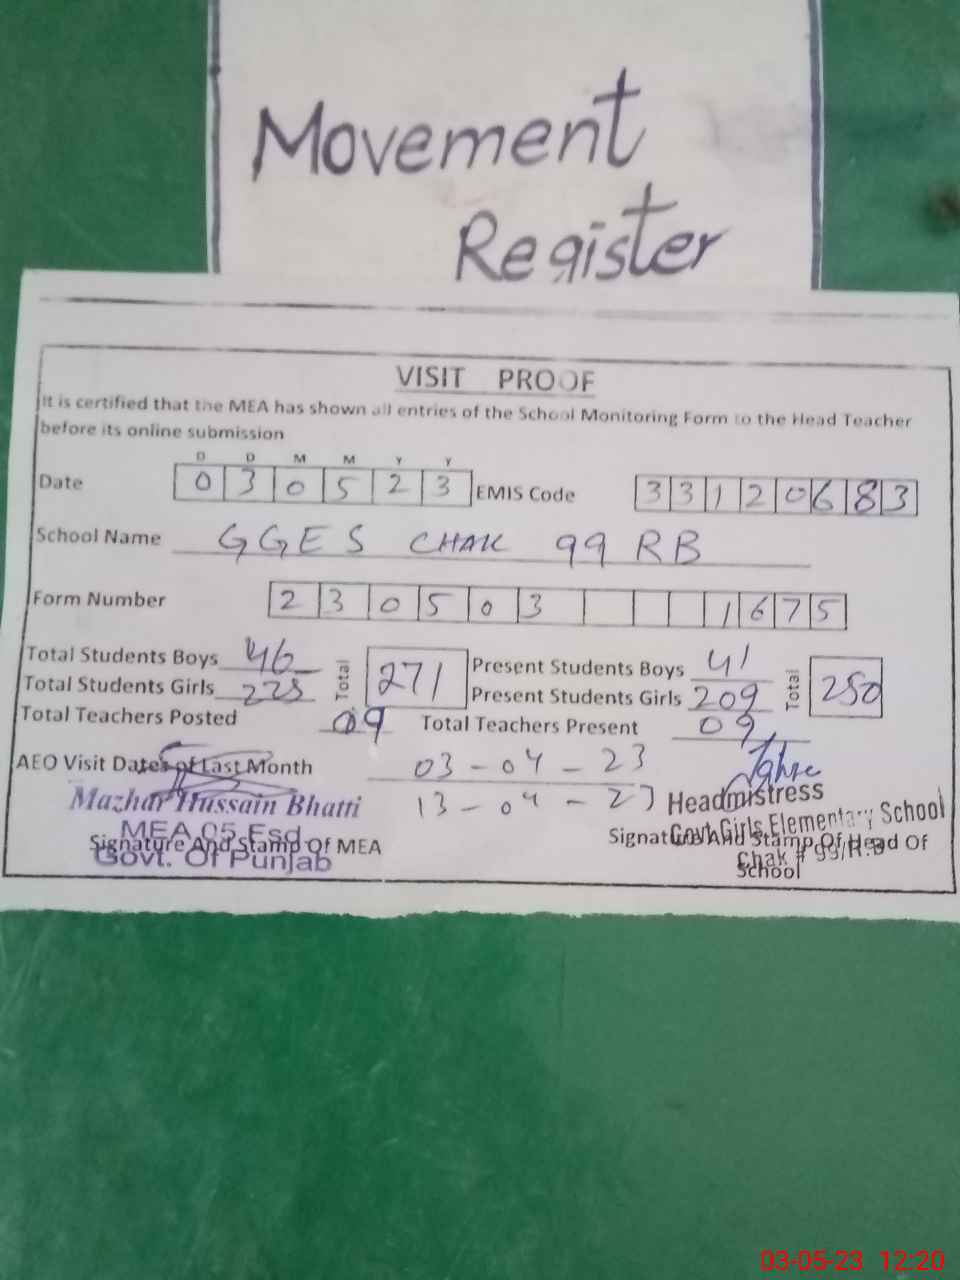 Movement
Register
VISIT PROOF
It is certified that the MEA has shown all entries of the School Monitoring Form to the Head Teacher
before its online submission
D D M M Y Y
Date 0 3 0 5 2 3 EMIS Code 3 3 1 2 0 6 8 3
School Name GGES CHAK 99 RB
Form Number 2 3 0 5 0 3 1 6 7 5
Total Students Boys 46 Total 271 Present Students Boys 41 Total 250
Total Students Girls 225 Present Students Girls 209
Total Teachers Posted 09 Total Teachers Present 09
AEO Visit Dates of Last Month 03-04-23
13-04-23
Mazhar Hussain Bhatti
MEA 05 Fsd
Govt. Of Punjab
Signature And Stamp Of MEA
Headmistress
Govt. Girls Elementary School
Chak # 99/R.B
Signature And Stamp Of Head Of
School
03-05-23 12:20